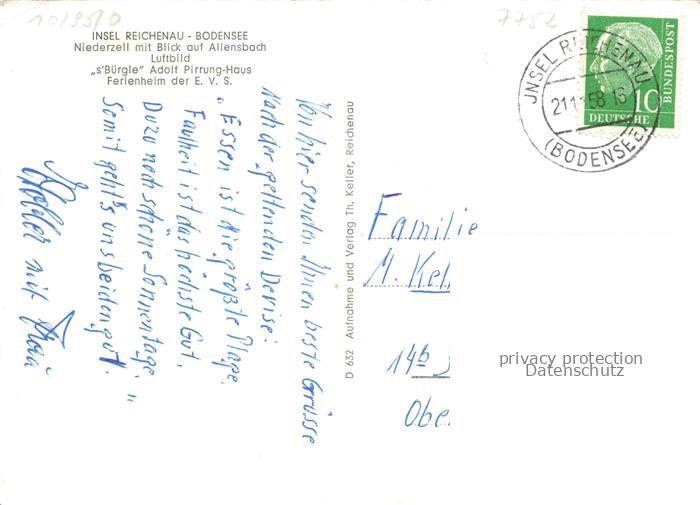 10/95/0
7752
INSEL REICHENAU - BODENSEE
Niederzell mit Blick auf Allensbach
Luftbild
„s'Bürgle" Adolf Pirrung-Haus
Ferienheim der E. V. S.
Von hier senden Ihnen beste Grüsse
nach der geltenden Devise:
„Essen ist die größte Plage,
Faulheit ist das höchste Gut,
Dazu noch schöne Sonnentage,"
Somit geht's uns beiden gut.
mit Frau
D 632 Aufnahme und Verlag Th. Keller, Reichenau
JNSEL REICHENAU
21.1 58 16
(BODENSEE)
10
DEUTSCHE
BUNDESPOST
Familie
M. Kel.
14b
Obe.
privacy protection
Datenschutz